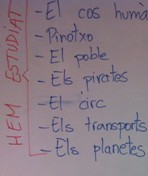 HEM ESTUDIAT
- El cos humà
- Pinotxo
- El poble
- Els pirates
- El circ
- Els transports
- Els planetes